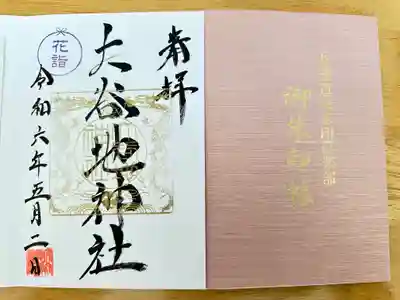 奉拝
大谷地神社
花詣
令和六年五月二日
御朱印帳